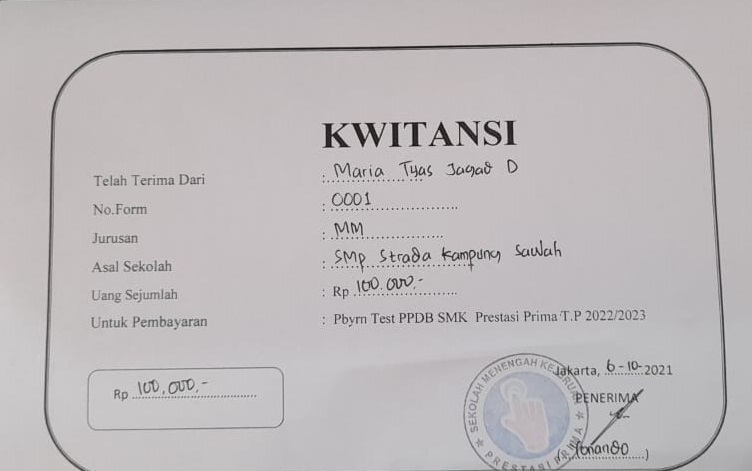 KWITANSI
Telah Terima Dari : Maria Tyas Jagad D
No.Form : 0001
Jurusan : MM
Asal Sekolah : SMP Strada Kampung Sawah
Uang Sejumlah : Rp 100.000.-
Untuk Pembayaran : Pbyrn Test PPDB SMK Prestasi Prima T.P 2022/2023
Rp 100,000,-
Jakarta, 6-10-2021
PENERIMA
SEKOLAH MENENGAH KEJURUAN
PRESTASI PRIMA